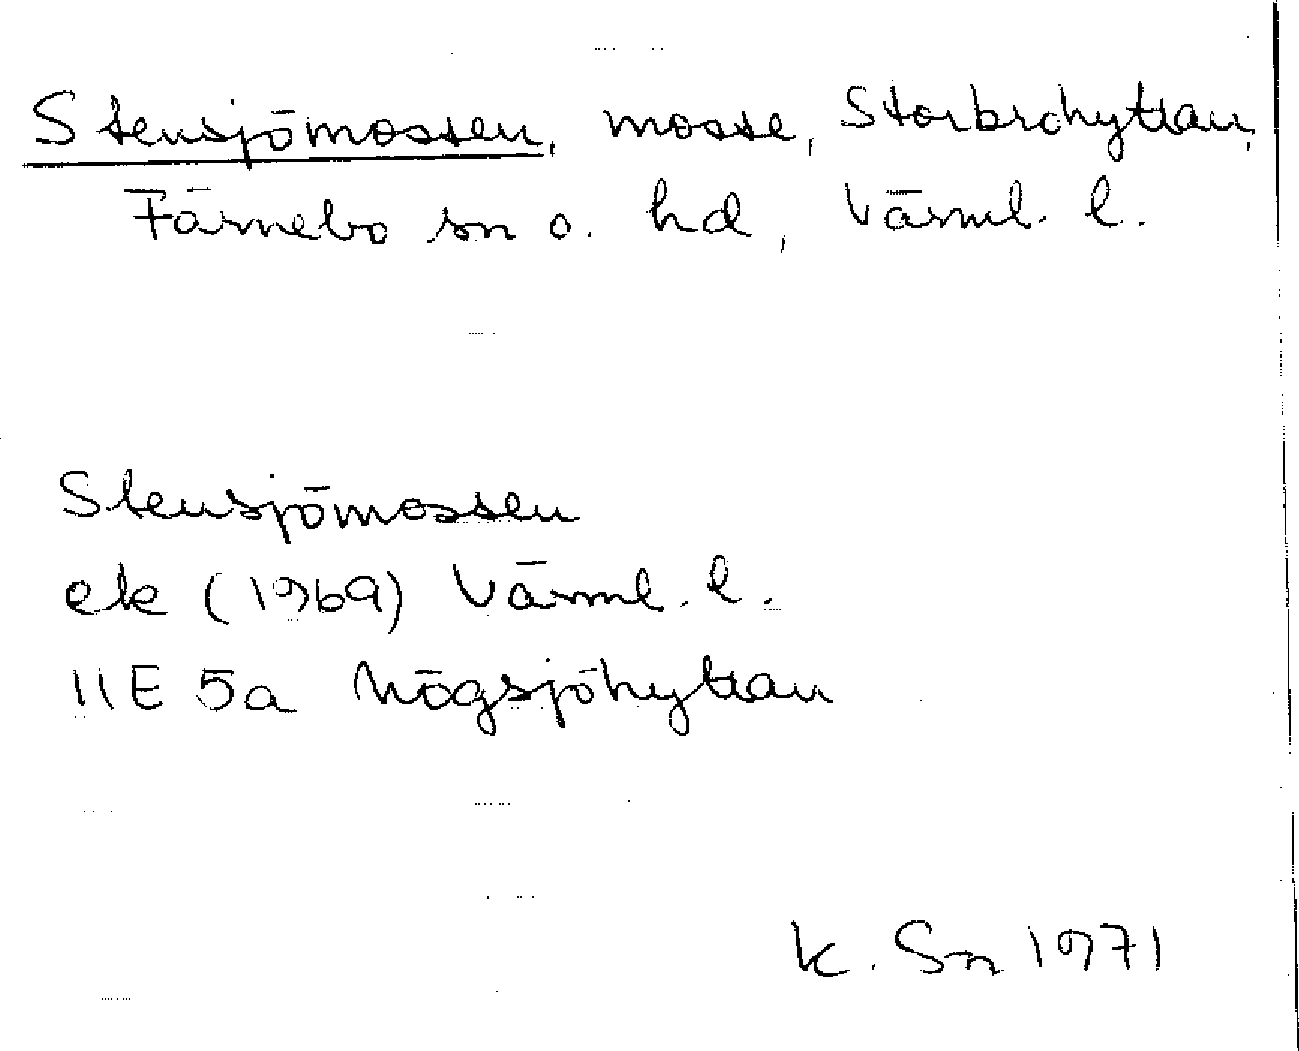 Stensjömossen, mosse, Storbrohyttan,
Färnebo sn o. hd, Värml. l.
Stensjömossen
ek (1969) Värml. l.
11E 5a Högsjöhyttan
K. Sn 1971